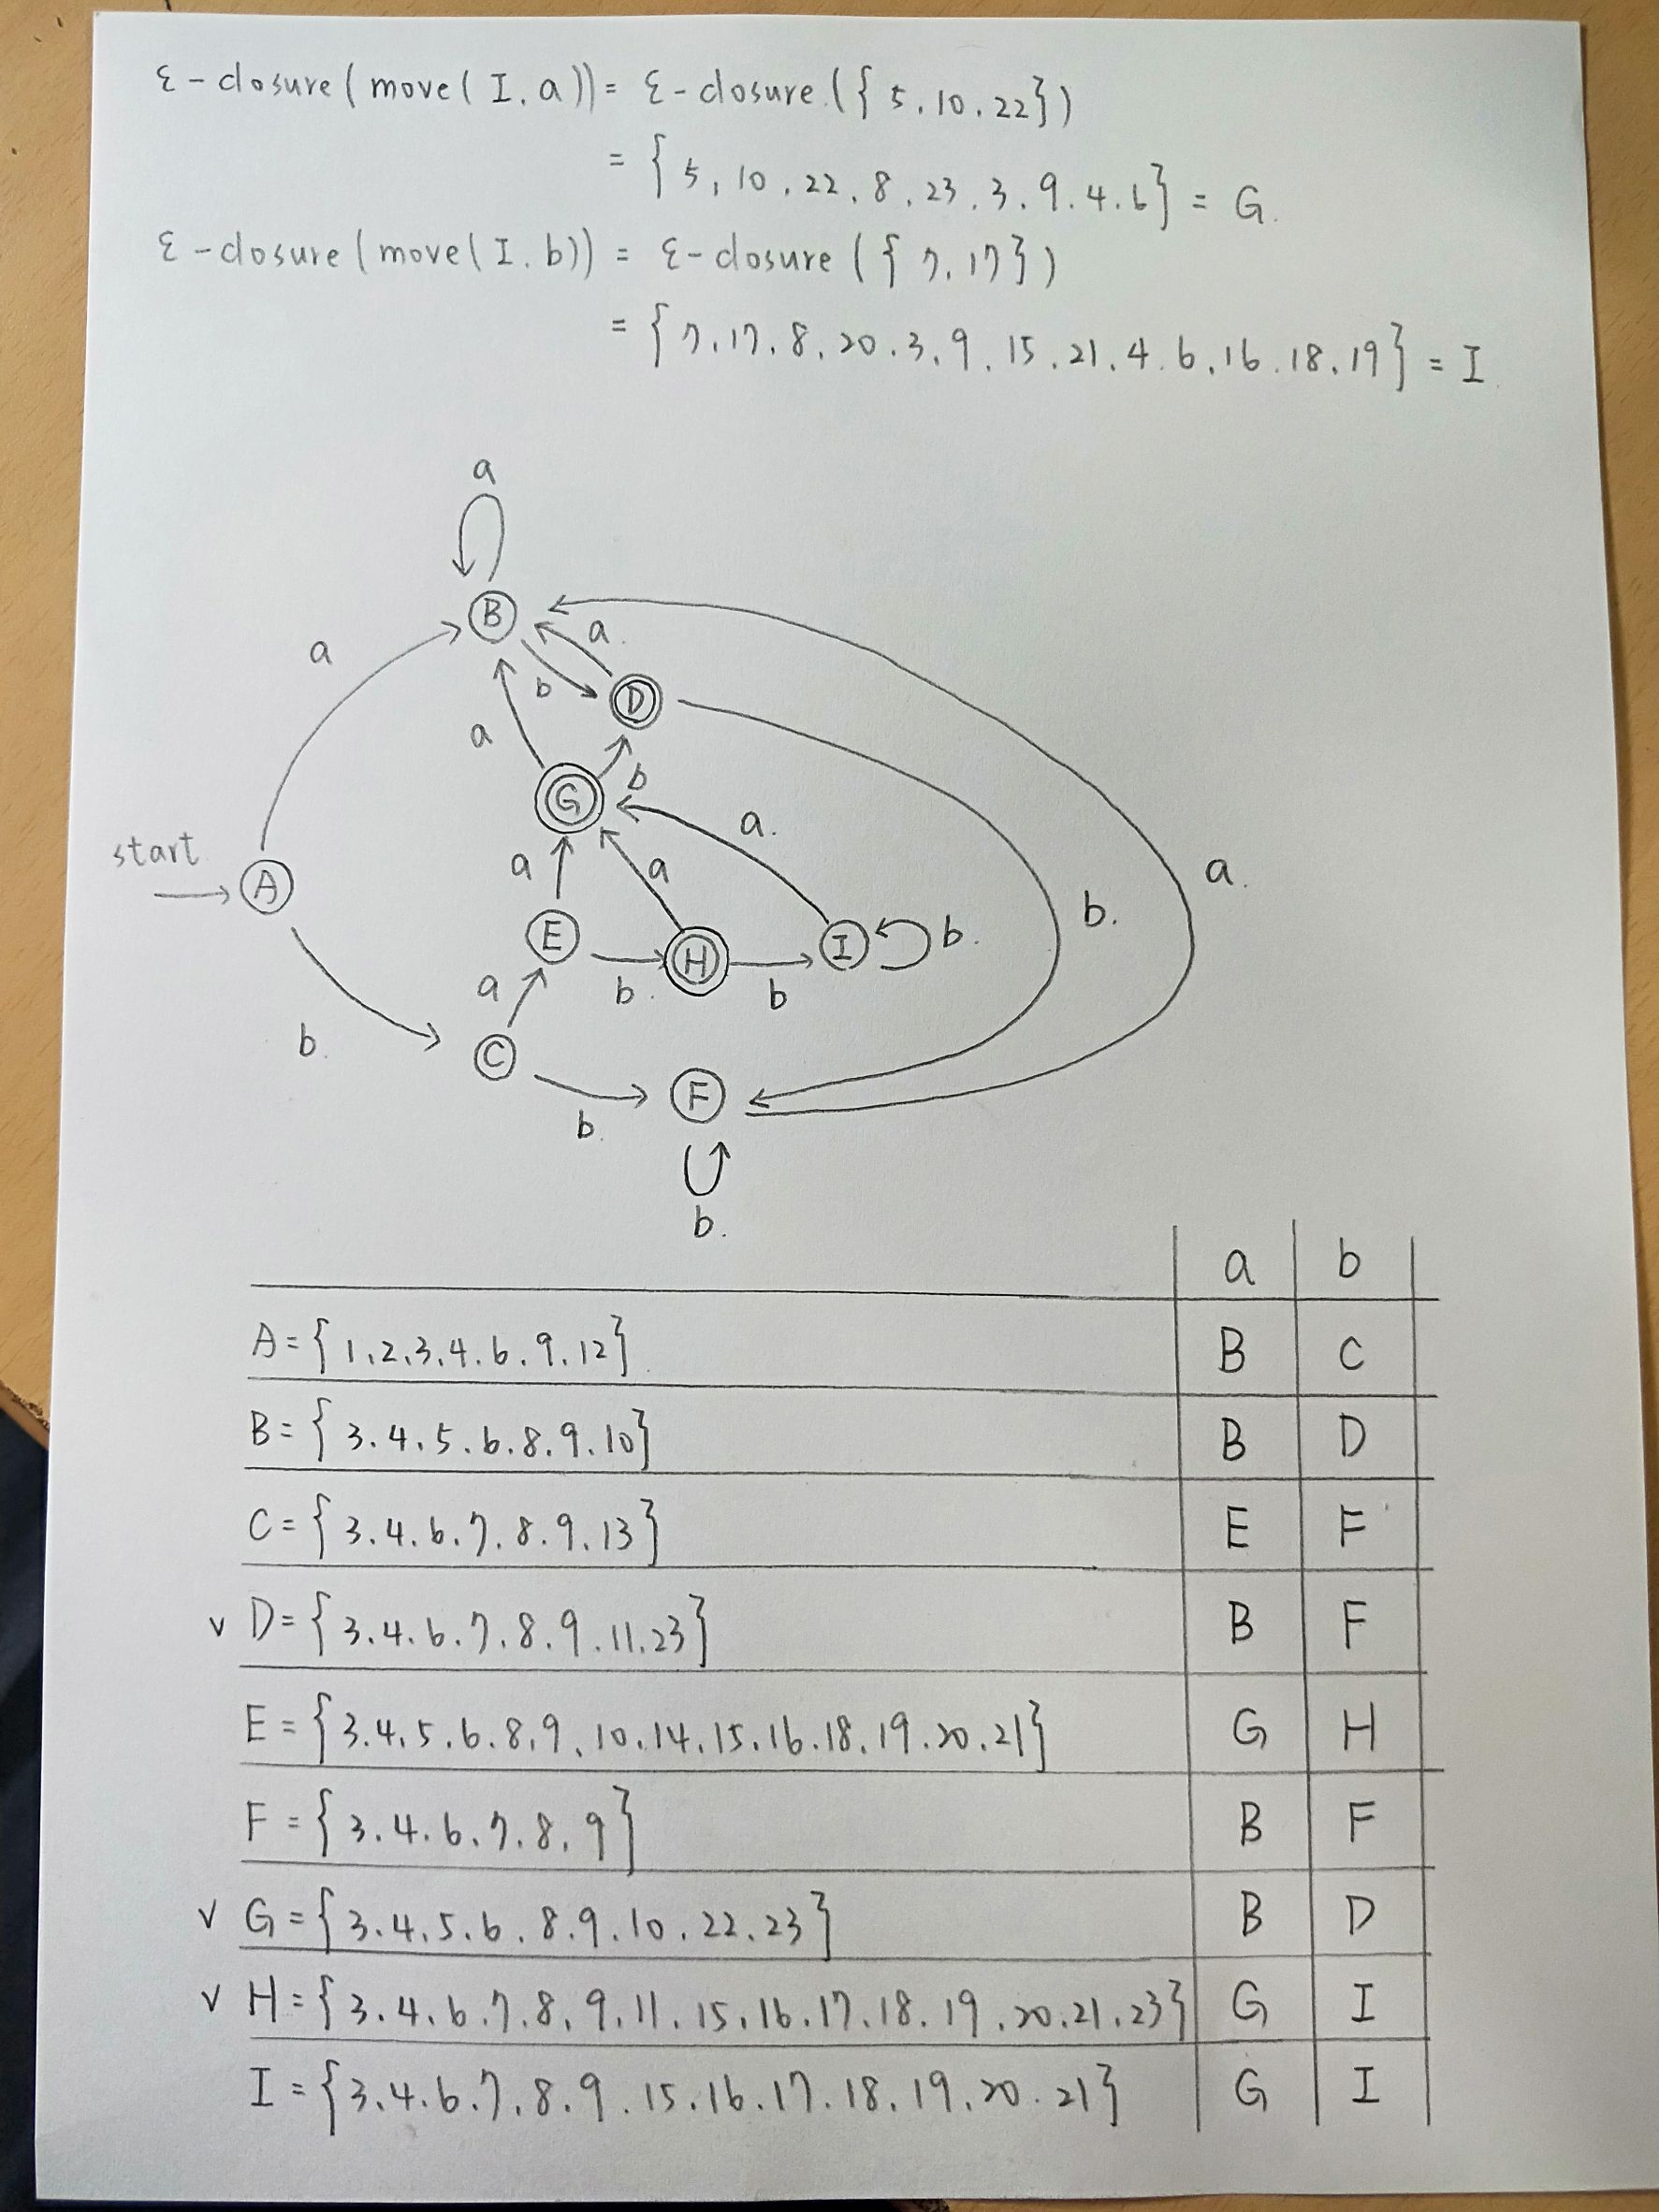 ε-closure(move(I.a)) = ε-closure({5.10.22})
= {5, 10.22.8.23.3.9.4.6} = G.
ε-closure(move(I.b)) = ε-closure({7.17})
= {7.17.8.20.3.9.15.21.4.6.16.18.19} = I
a
B
a
a.
b
D
a
b
G
a.
start
a
a
a.
A
b.
E
H
I
b.
a
b.
b
b.
C
F
b.
b.
a b
A={1.2.3.4.6.9.12} B C
B={3.4.5.6.8.9.10} B D
C={3.4.6.7.8.9.13} E F
v D={3.4.6.7.8.9.11.23} B F
E={3.4.5.6.8.9.10.14.15.16.18.19.20.21} G H
F={3.4.6.7.8.9} B F
v G={3.4.5.6.8.9.10.22.23} B D
v H={3.4.6.7.8.9.11.15.16.17.18.19.20.21.23} G I
I={3.4.6.7.8.9.15.16.17.18.19.20.21} G I